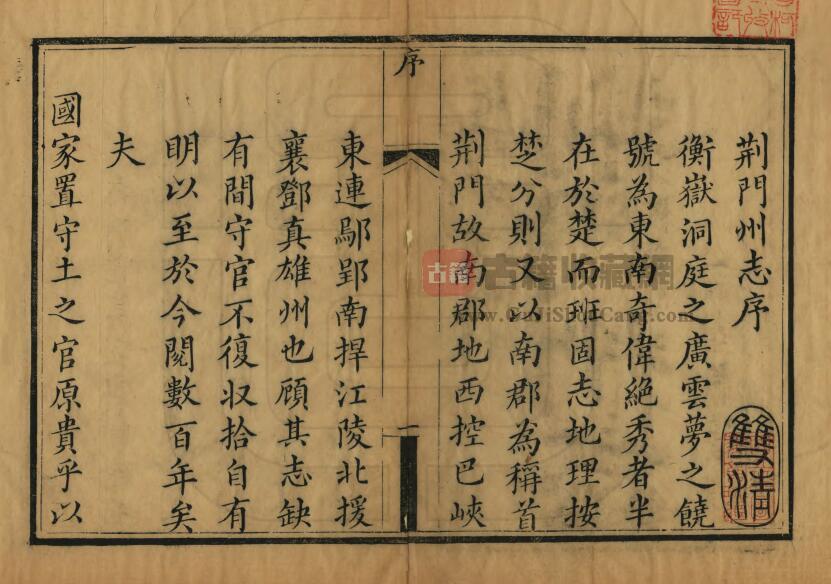 荆門州志序
衡嶽洞庭之廣雲夢之饒
號為東南奇偉絶秀者半
在於楚而班固志地理按
楚分則又以南郡為稱首
荆門故南郡地西控巴峽
序
一
東連鄢郢南捍江陵北援
襄鄧真雄州也顧其志缺
有間守官不復収拾自有
明以至於今閱數百年矣
夫
國家置守土之官原貴乎以
雙清
古籍
古籍收藏網
www.GuJiShouCang.com